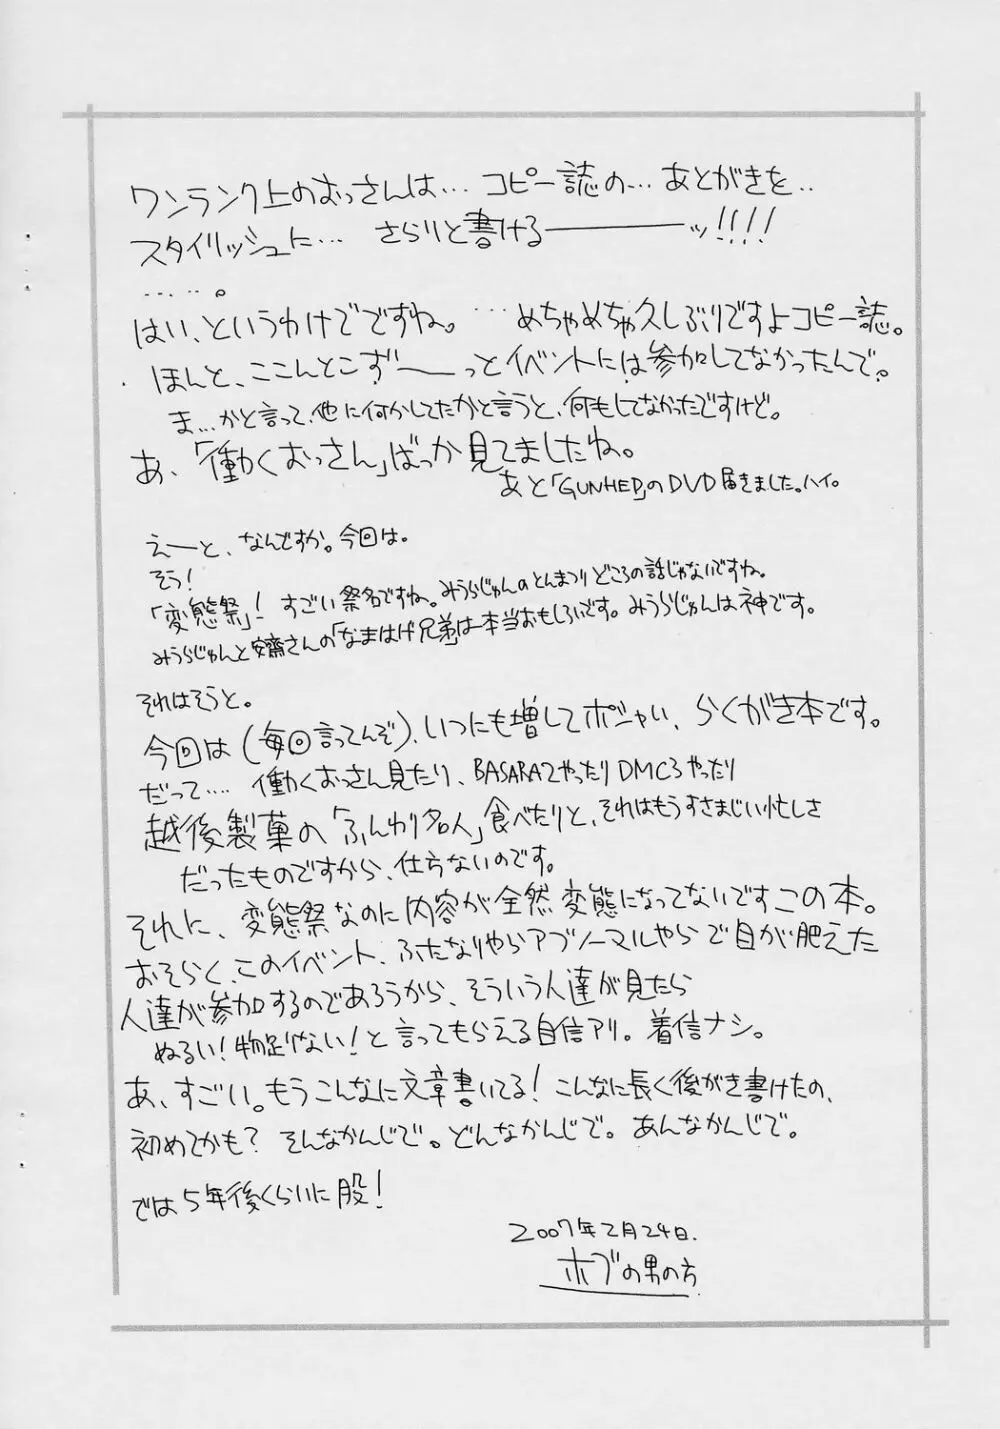 ワンランク上のおっさんは… コピー誌の… あとがきを‥
スタイリッシュに… さらりと書ける――――ッ!!!!
‥‥‥。
はい、というわけでですね。 …めちゃめちゃ久しぶりですよコピー誌。
ほんと、ここんとこず――っとイベントには参加してなかったんで。
ま…かと言って、他に何かしてたかと言うと、何もしてなかったですけど。
あ、「働くおっさん」ばっか見てましたね。
あと「GUNHED」のDVD届きました。ハイ。
えーと、なんですか。今回は。
そう!
「変態祭」! すごい祭名ですね。みうらじゅんのとんまつりどころの話じゃないですね。
みうらじゅんと安齋さんの「なまはげ兄弟」は本当おもしろいです。みうらじゅんは神です。
それはそうと。
今回は(毎回言ってんぞ)、いつにも増してボンヤい、らくがき本です。
だって‥‥ 働くおっさん見たり、BASARA2やったりDMC3やったり
越後製菓の「ふんわり名人」食べたりと、それはもうすさまじい忙しさ
だったものですから、仕方ないのです。
それに、変態祭なのに内容が全然変態になってないですこの本。
おそらく、このイベント、ふたなりやらアブノーマルやらで目が肥えた
人達が参加するのであろうから、そういう人達が見たら
ぬるい!物足りない!と言ってもらえる自信アリ。着信ナシ。
あ、すごい。もうこんなに文章書いてる! こんなに長く後がき書けたの、
初めてかも? そんなかんじで。どんなかんじで。あんなかんじで。
では5年後くらいに股!
2007年2月24日.
ホブの男の方